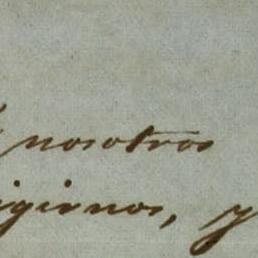 nosotros
igirnos, y